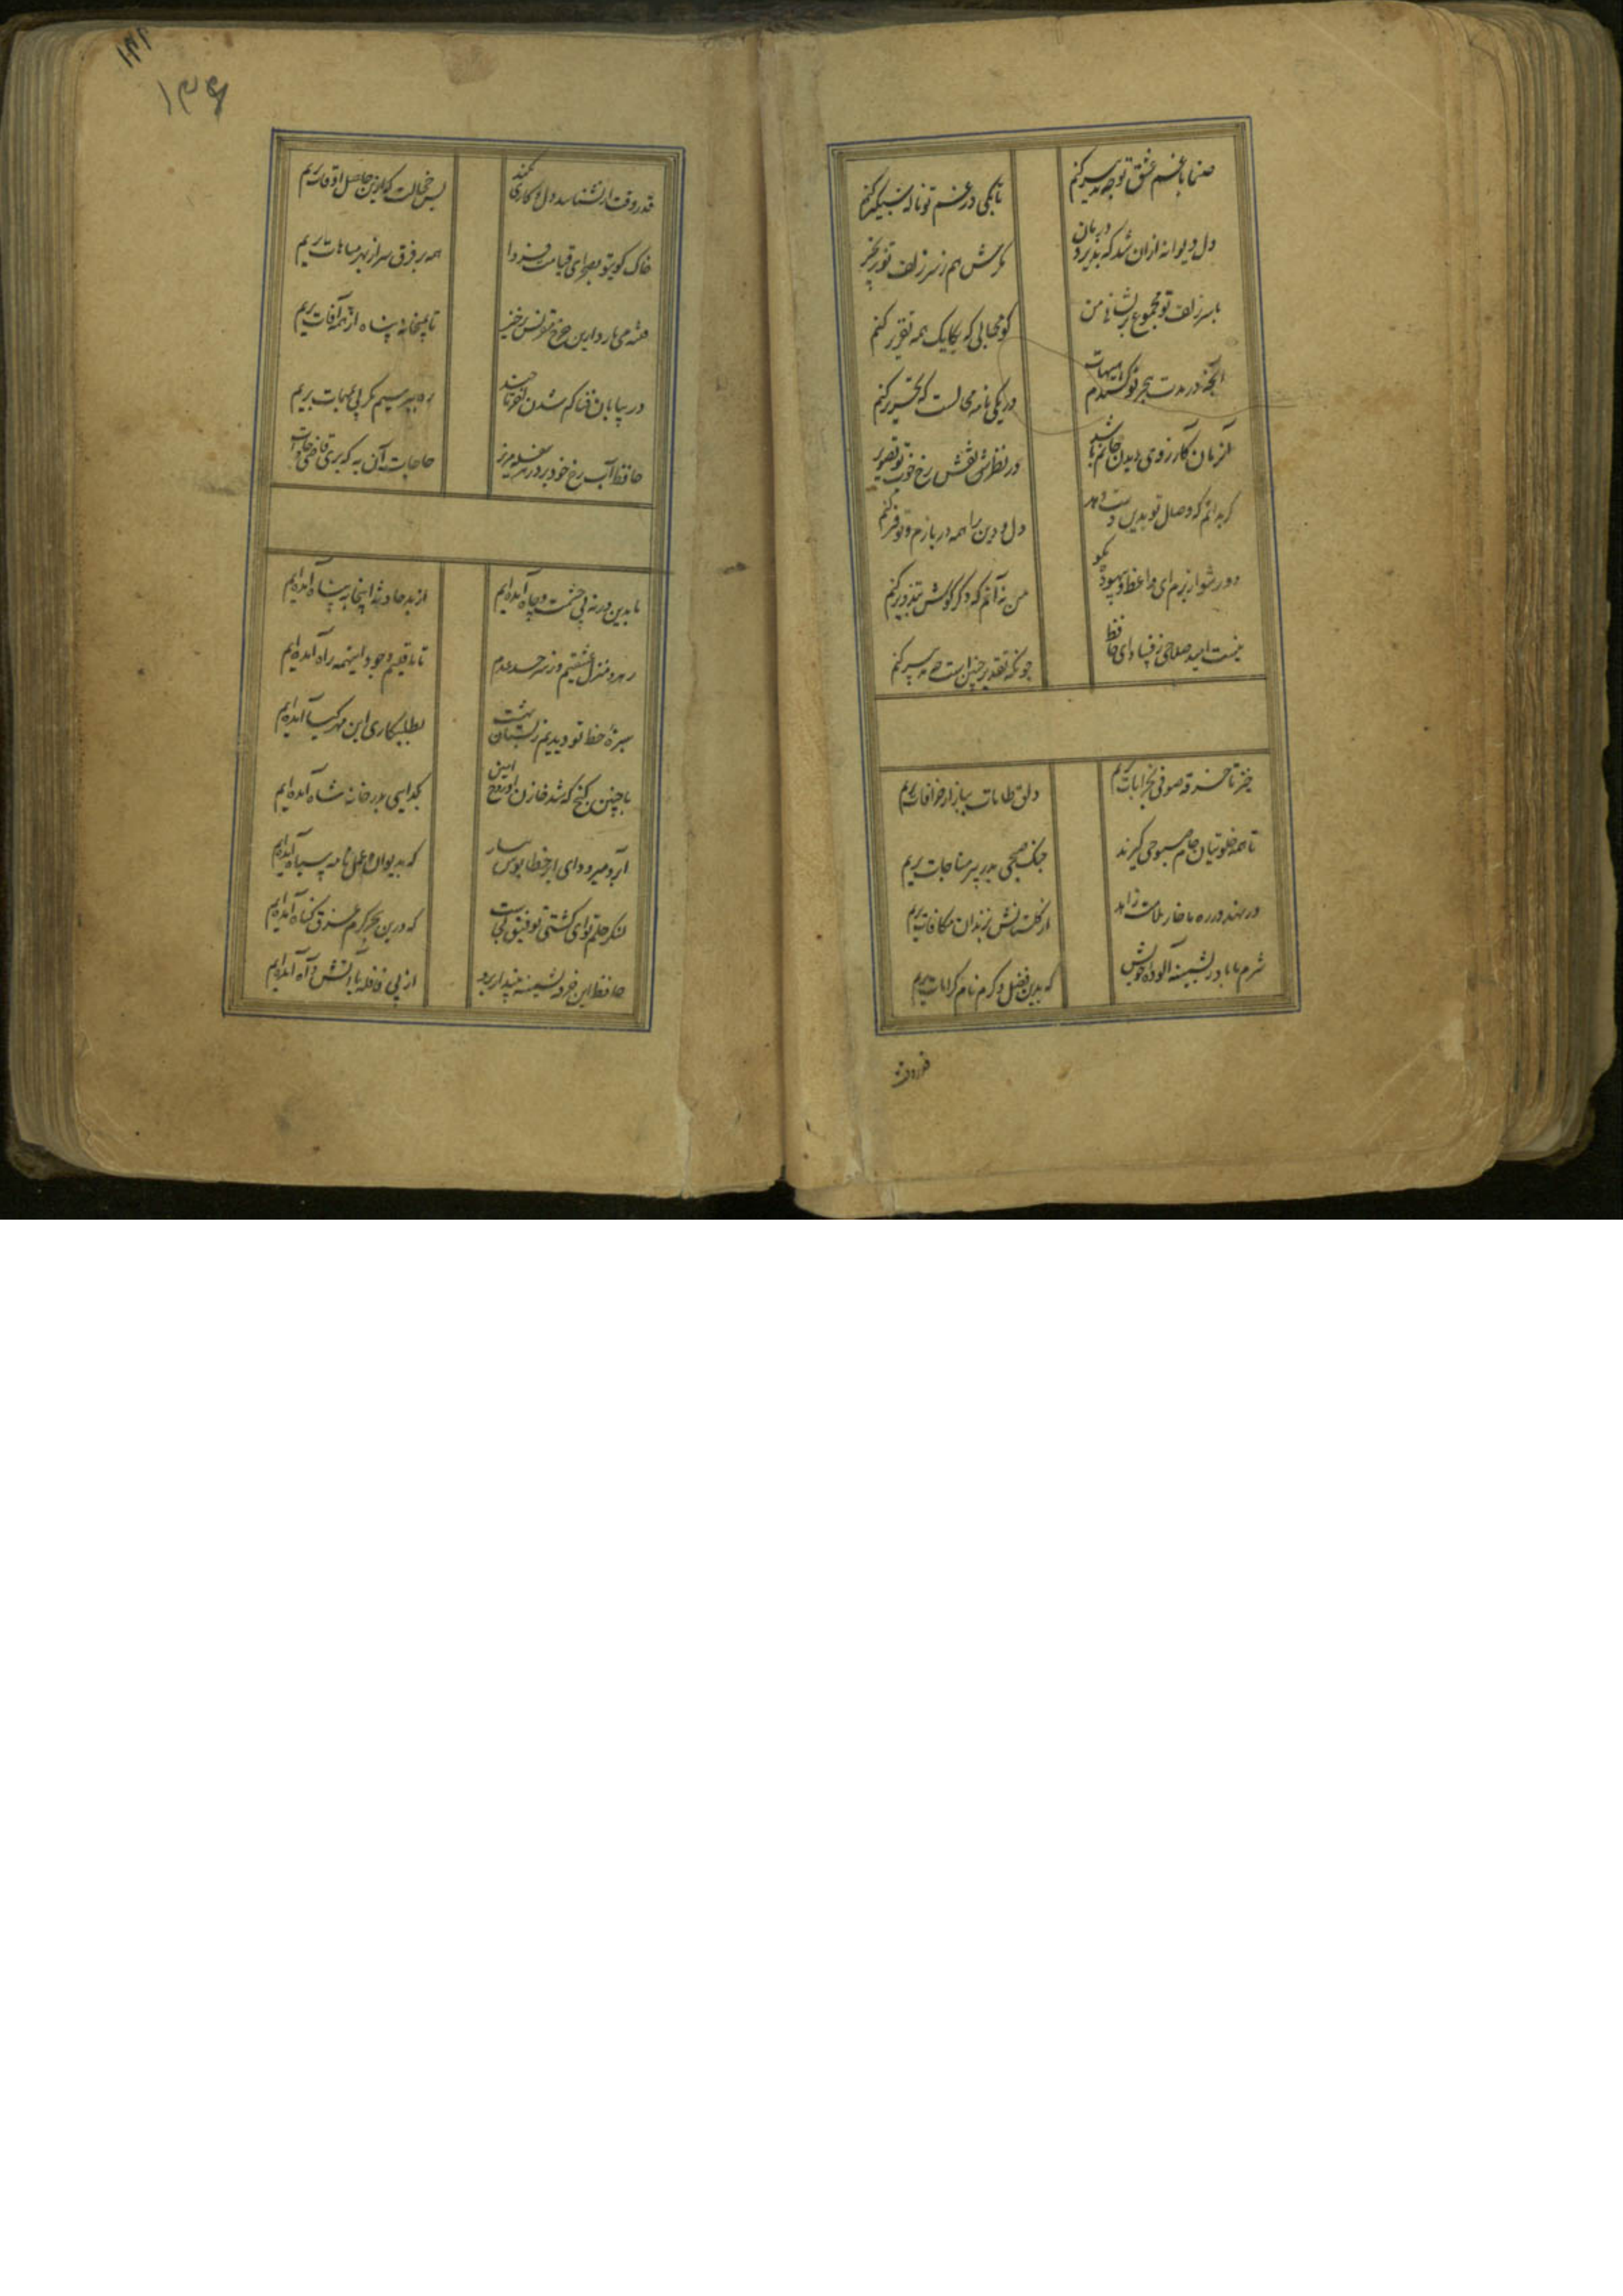 صنما با غم عشق تو چه تدبیر کنم
تا بکی در غم تو ناله شبکیر کنم
دل دیوانه ازان شد که پذیرد درمان
مکرش هم ز سر زلف تو زنجیر کنم
با سر زلف تو مجموع پریشانی من
کو مجالی که یکایک همه تقریر کنم
آنچه در مدت هجر تو کشیدم هیهات
در یکی نامه محالست که تحریر کنم
آنزمان کارزوی دیدن جانم باشد
در نظر نقش رخ خوب تو تصویر کنم
کر بدانم که وصال تو بدین دست دهد
دل و دین را همه دربازم و توفیر کنم
دور شو از برم ای واعظ و بیهوده مکو
من نه آنم که دکر کوش بتزویر کنم
نیست امید صلاحی ز فساد ای حافظ
چونکه تقدیر چنین است چه تدبیر کنم
خیز تا خرقه صوفی بخرابات بریم
دلق طامات ببازار خرافات بریم
تا همه خلوتیان جام صبوحی کیرند
چنک صبحی بدر پیر مناجات بریم
ور نهد در ره ما خار ملامت زاهد
از کلستانش بزندان مکافات بریم
شرم ما باد ز پشمینه آلوده خویش
که بدین فضل و کرم نام کرامات بریم
قدر وقت ار نشناسد دل و کاری نکند
بس خجالت که ازین حاصل اوقات بریم
خاک کوی تو بصحرای قیامت فردا
همه بر فرق سر از بهر مباهات بریم
فتنه می بارد ازین چرخ مقرنس برخیز
تا بمیخانه پناه از همه آفات بریم
در بیابان فنا کم شدن آخر تا چند
ره بپرسیم مکر پی بمهمات بریم
حافظ آب رخ خود بر در هر سفله مریز
حاجات آن به که بر قاضی حاجات بریم
ما بدین در نه پی حشمت و جاه آمده‌ایم
از بد حادثه اینجا به پناه آمده‌ایم
رهرو منزل عشقیم و ز سرحد عدم
تا باقلیم وجود اینهمه راه آمده‌ایم
سبزه خط تو دیدیم ز بستان بهشت
بطلبکاری این مهر کیا آمده‌ایم
با چنین کنج که شد خازن او روح امین
بکدایی بدر خانه شاه آمده‌ایم
آبرو میرود ای ابر خطاپوش ببار
که بدیوان عمل نامه سیاه آمده‌ایم
لنکر حلم تو ای کشتی توفیق کجاست
که درین بحر کرم غرق کناه آمده‌ایم
حافظ این خرقه پشمینه بینداز برو
از پی قافله با آتش و آه آمده‌ایم